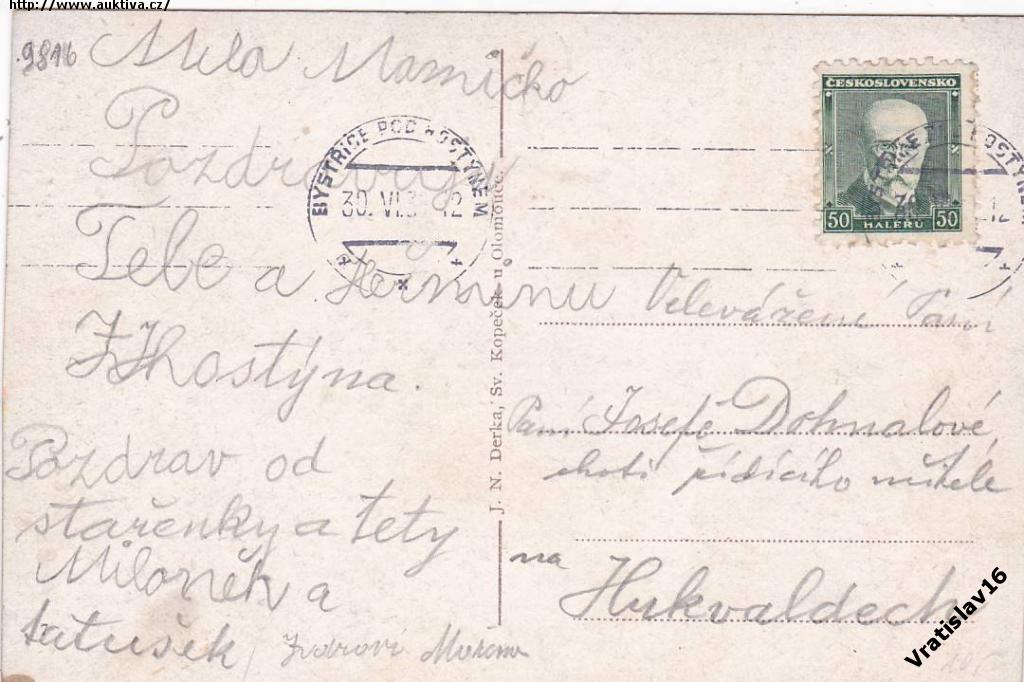 http://www.auktiva.cz/
9816
Mila Mamičko
Pozdravuji
Tebe a Herminu
z Hostýna.
Pozdrav od
stařenky a tety
Miloněk a
tatušek
BYSTŘICE POD HOSTÝNEM
30. VI.3 12
J. N. Derka, Sv. Kopeček u Olomouce.
ČESKOSLOVENSKO
50 HALÉRŮ 50
Velevážená Paní
Paní Josefě Dohnalové,
choti řídícího učitele
na
Hukvaldech
Vratislav16